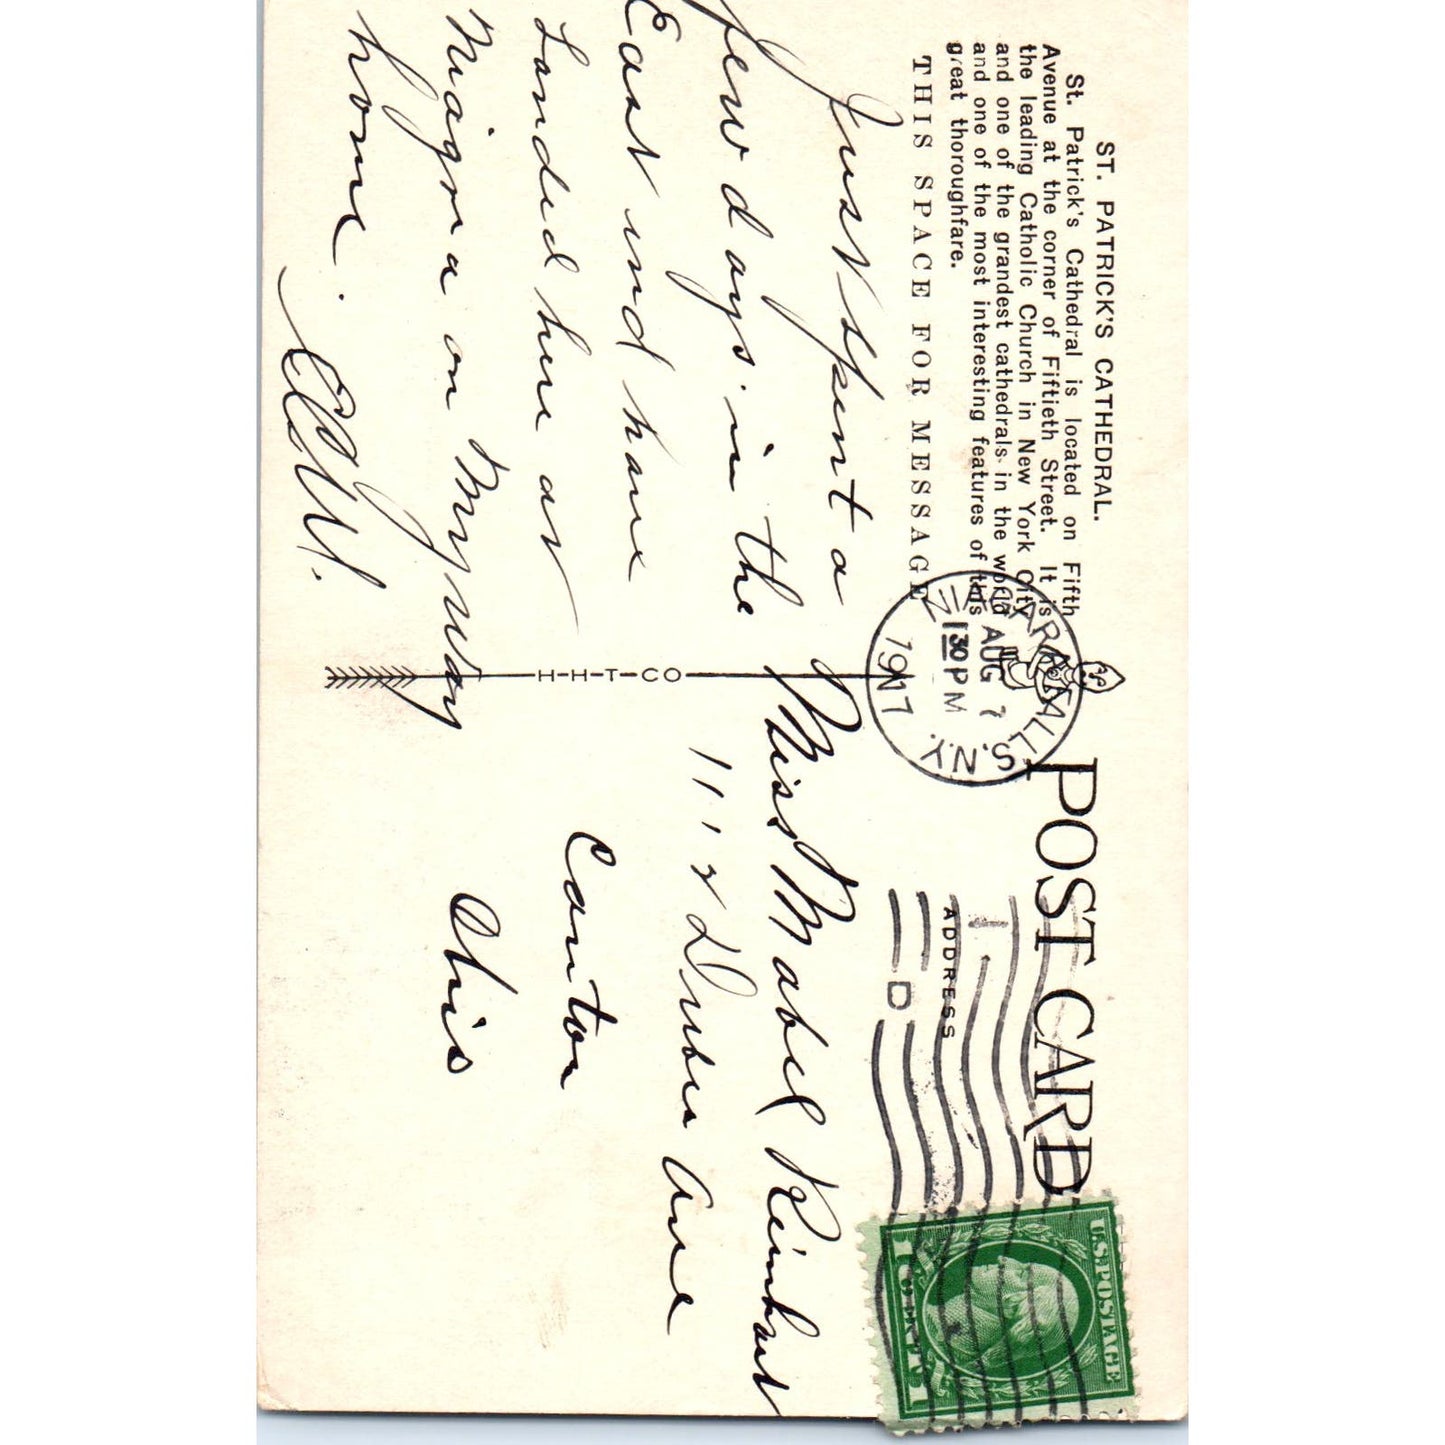 ST. PATRICK'S CATHEDRAL.
St. Patrick's Cathedral is located on Fifth
Avenue at the corner of Fiftieth Street. It is
the leading Catholic Church in New York City
and one of the grandest cathedrals in the world
and one of the most interesting features of this
great thoroughfare.
THIS SPACE FOR MESSAGE
Just spent a
few days in the
East und have
Landed here at
Niagra on My way
home.
H-H-T-CO
NIAGARA FALLS. N.Y.
AUG 7
130 PM
1917
POST CARD
ADDRESS
D
Miss Mabel Reinhart
1112 Ave
Canton
Ohio
U.S. POSTAGE
1 CENT 1